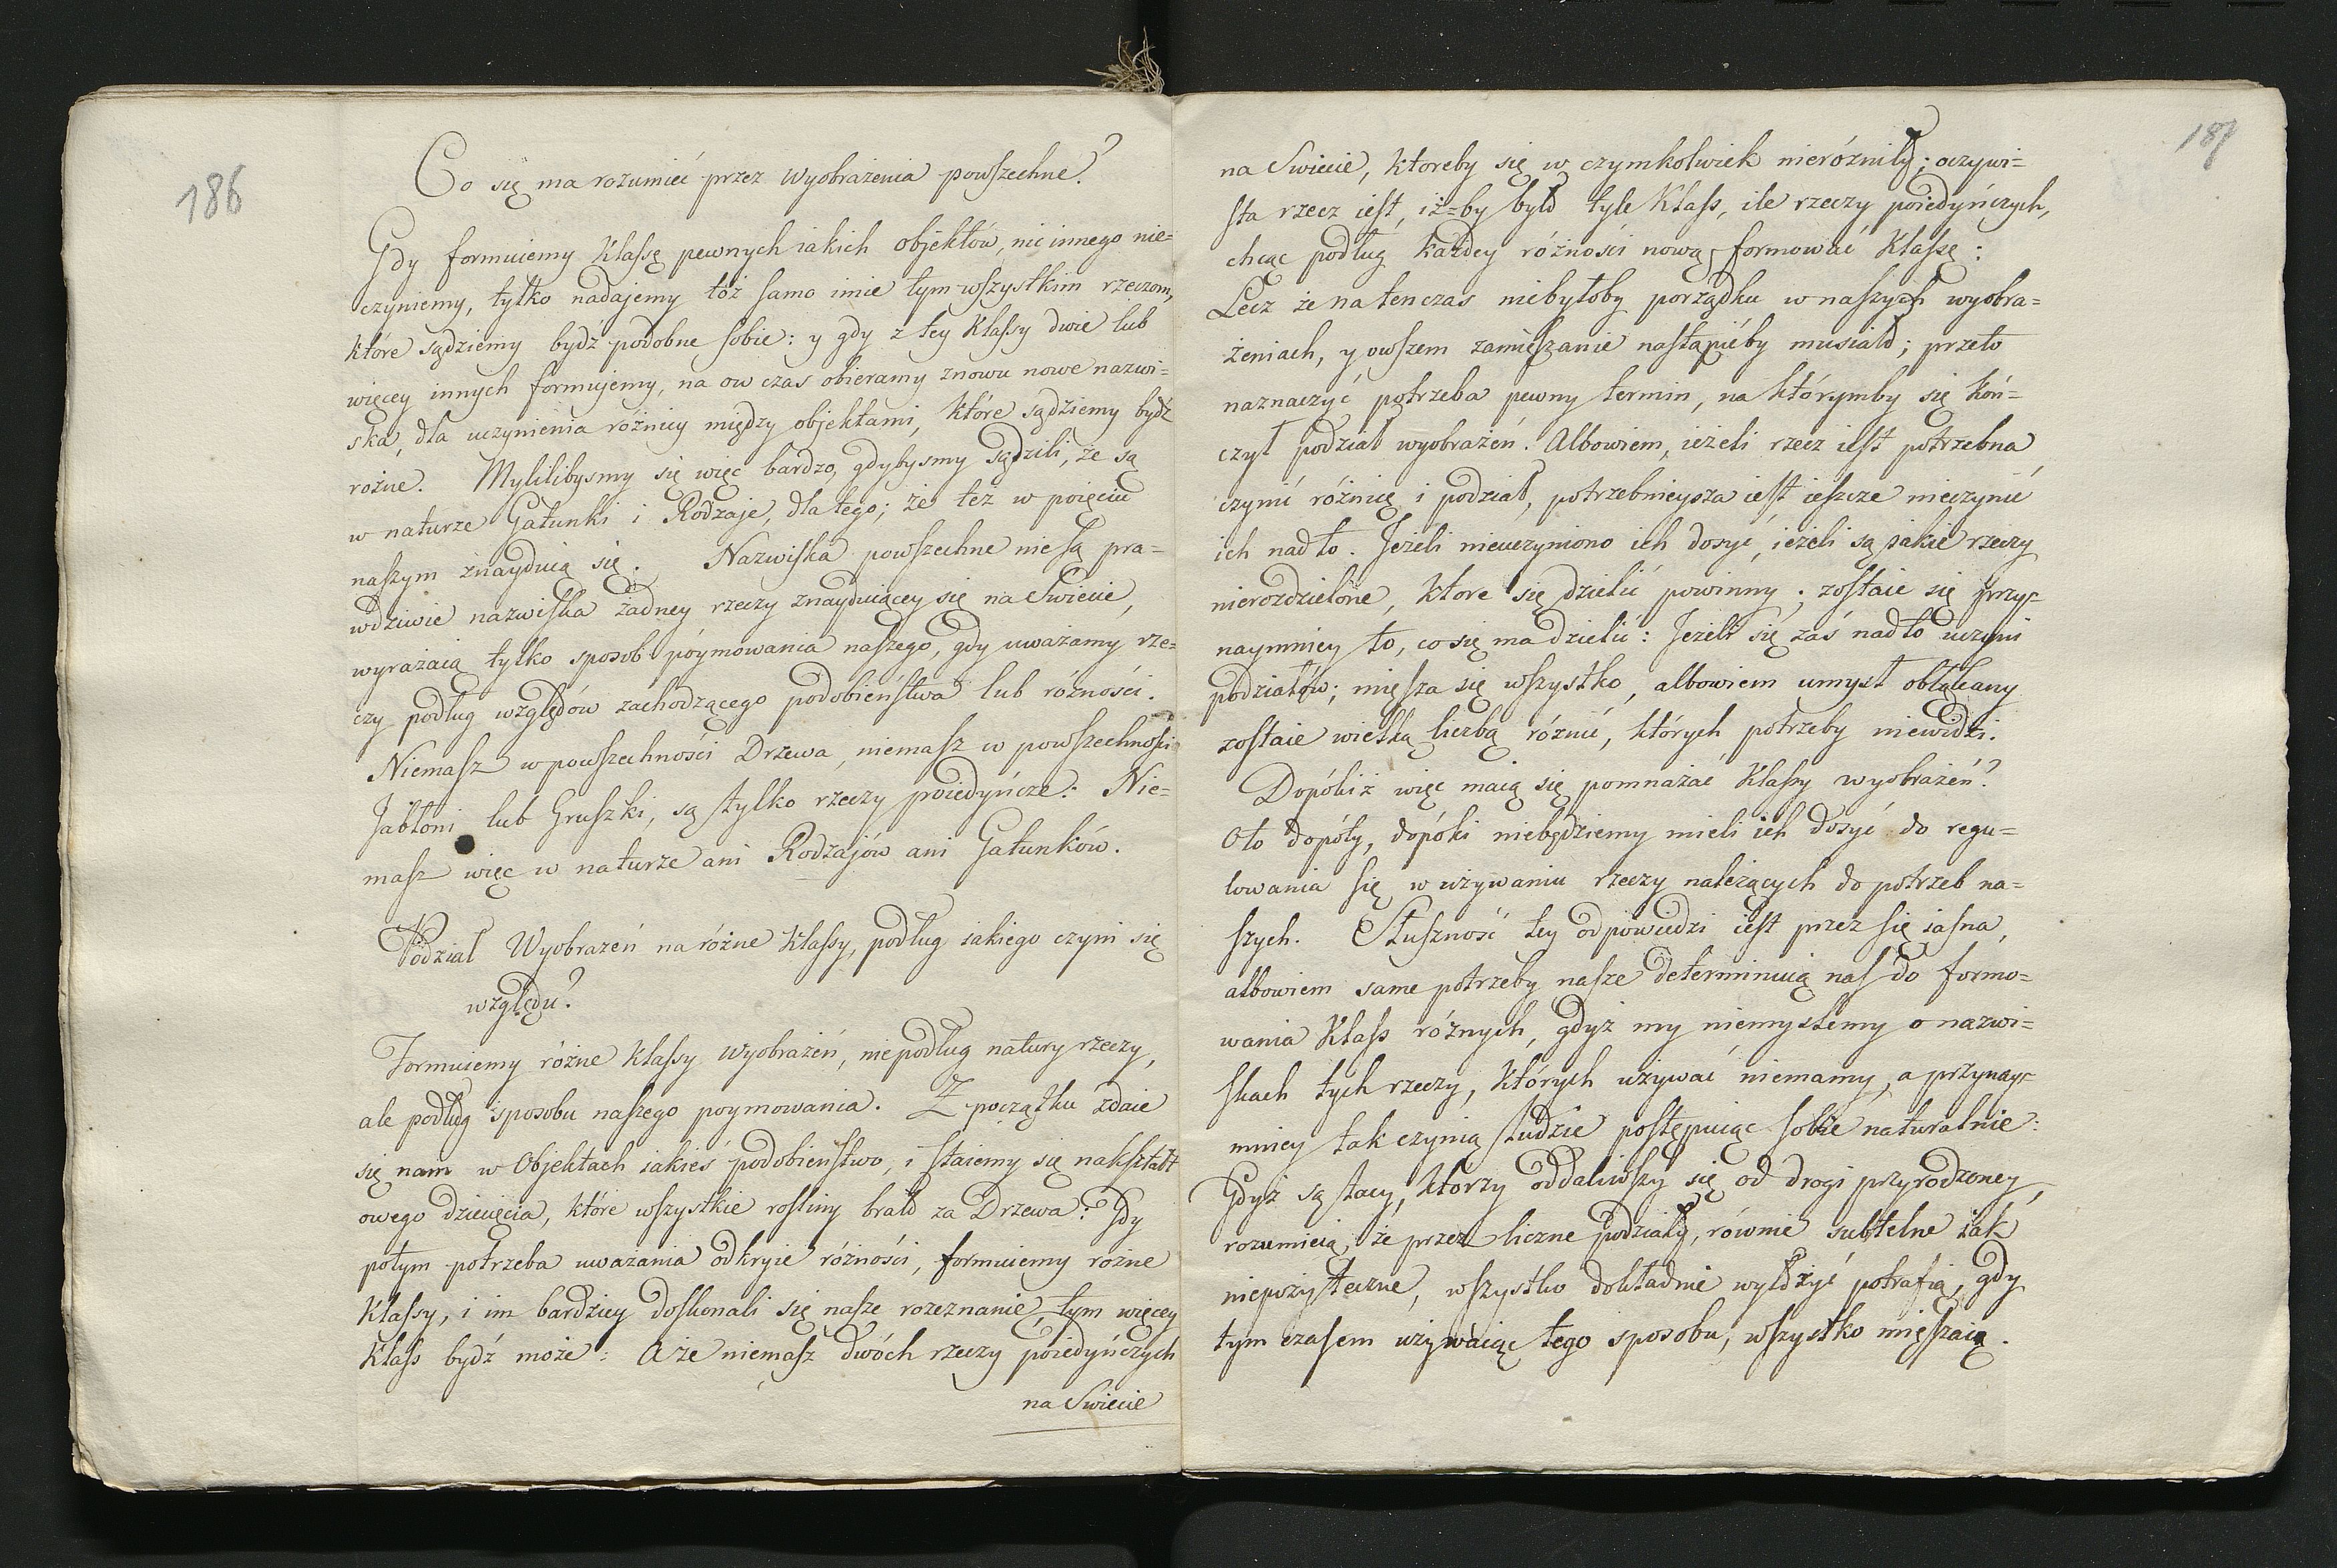 186
Co się ma rozumieć przez wyobrażenia powszechne?
Gdy formuiemy Klassę pewnych iakich objektów, nic innego nie=
czyniemy, tylko nadajemy toż samo imie tym wszystkim rzeczom,
które sądziemy bydź podobne sobie: y gdy z tey Klassy dwie lub
więcey innych formujemy, na ow czas obieramy znowu nowe nazwi=
ska, dla uczynienia różnicy między objektami, które sądziemy bydź
rożne. Mylilibysmy się więc bardzo, gdybysmy sądzili, że są
w naturze Gatunki i Rodzaje, dla tego; że też w poięciu
naszym znayduią się. Nazwiska powszechne nie są pra=
wdziwie nazwiska żadney rzeczy znayduiącey się na Swiecie,
wyrażaią tylko sposob póymowania naszego, gdy uważamy rze=
czy podług względów zachodzącego podobieństwa lub różności.
Niemasz w powszechności Drzewa, niemasz w powszechności
Jabłoni lub Gruszki, są tylko rzeczy poiedyńcze: Nie=
masz więc w naturze ani Rodzajów ani Gatunków.
Podział Wyobrażeń na różne klassy, podług iakiego czyni się
względu?
Formuiemy różne Klassy wyobrażeń, nie podług natury rzeczy,
ale podług sposobu naszego poymowania. Z początku zdaie
się nam w Objektach iakieś podobieństwo, i staiemy się nakształt
owego dziecięcia, które wszystkie rosliny brało za Drzewa: Gdy
potym potrzeba uważania odkryie różności, formuiemy rożne
Klassy, i im bardziey doskonali się nasze rozeznanie, tym więcey
Klass bydź może: A że niemasz dwóch rzeczy poiedyńczych
na Swiecie
187
na Swiecie, ktoreby się w czymkolwiek nieróżniły; oczywi=
sta rzecz iest, iż=by było tyle Klass, ile rzeczy poiedyńczych,
chcąc podług każdey różności nową formować Klassę:
Lecz że na tenczas niebyłoby porządku w naszych wyobra=
żeniach, y owszem zamięszanie nastąpićby musiało; przeto
naznaczyć potrzeba pewny termin, na którymby się koń=
czył podział wyobrażeń. Albowiem, ieżeli rzecz iest potrzebna
czynić różnicę i podział, potrzebnieysza iest ieszcze nieczynić
ich nadto. Jeżeli nieuczyniono ich dosyć, ieżeli są jakie rzeczy
nierozdzielone, ktore się dzielić powinny; zostaie się przy=
naymniey to, co się ma dzielić: Jeżeli się zaś nadto uczyni
podziałów; mięsza się wszystko, albowiem umysł obłąkany
zostaie wielką liczbą różnic, których potrzeby niewidzi.
Dopókiż więc maią się pomnażać Klassy wyobrażeń?
Oto dopóty, dopóki niebędziemy mieli ich dosyć do regu=
lowania się w używaniu rzeczy należących do potrzeb na=
szych. Słuszność tey odpowiedzi iest przez się iasna,
albowiem same potrzeby nasze determinuią nas do formo=
wania Klass różnych, gdyż my niemyslemy o nazwi=
skach tych rzeczy, których używać niemamy, a przynay=
mniey tak czynią ludzie postępuiąc sobie naturalnie:
Gdyż są tacy, ktorzy oddaliwszy się od drogi przyrodzoney,
rozumieią, że przez liczne podziały, równie subtelne iak
niepożyteczne, wszystko dokładnie wyłożyć potrafią, gdy
tym czasem używaiąc tego sposobu, wszystko mięszaią.